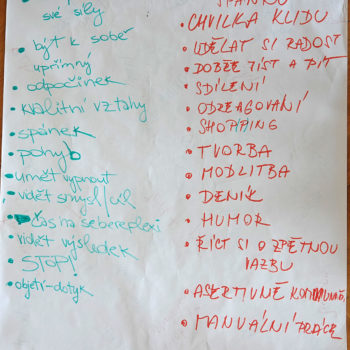 své síly
• být k sobě
upřímný
• odpočinek
• kvalitní vztahy
• spánek
• pohyb
• umět vypnout
• vidět smysl/cíl
• čas na sebereplexi
• vidět výsledek
• STOP!
• objetí-dotyk
SPÁNKU
• CHVILKA KLIDU
• UDĚLAT SI RADOST
• DOBŘE JÍST A PÍT
• SDÍLENÍ
• ODREAGOVÁNÍ
• SHOPPING
• TVORBA
• MODLITBA
• DENÍK
• HUMOR
• ŘÍCT SI O ZPĚTNOU
VAZBU
• ASERTIVNĚ
• MANUÁLNÍ PRÁCE